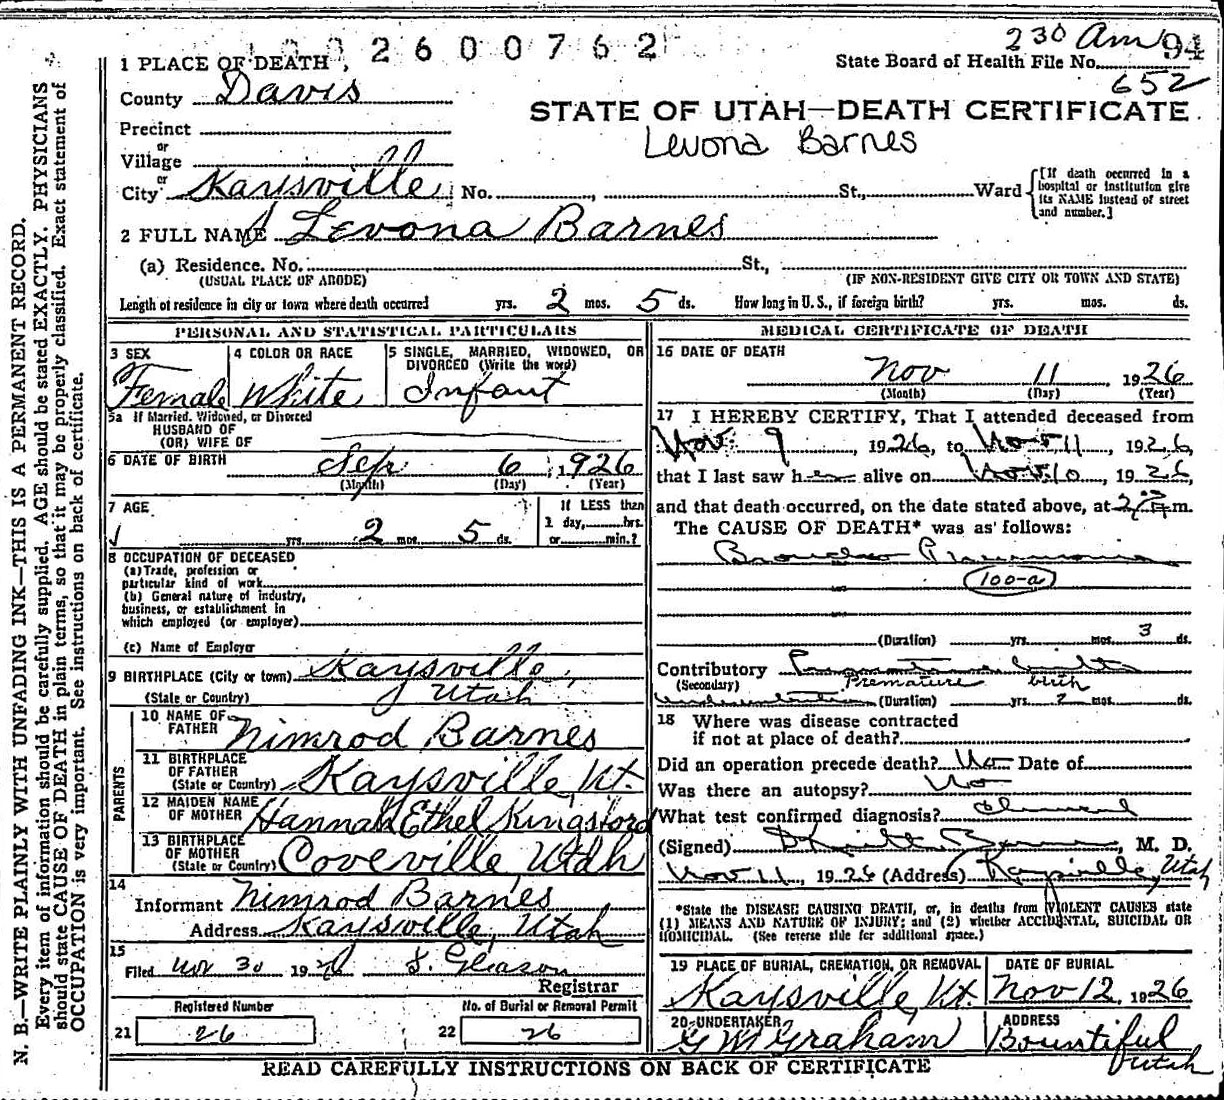 1002600762
2 30 Am 94
1 PLACE OF DEATH
State Board of Health File No.
652
County Davis
STATE OF UTAH—DEATH CERTIFICATE
Precinct
Levona Barnes
or
Village
or
City Kaysville No. St., Ward
[If death occurred in a hospital or institution give its NAME instead of street and number.]
2 FULL NAME Levona Barnes
(a) Residence. No. St.,
(USUAL PLACE OF ABODE) (IF NON-RESIDENT GIVE CITY OR TOWN AND STATE)
Length of residence in city or town where death occurred yrs. 2 mos. 5 ds. How long in U. S., if foreign birth? yrs. mos. ds.
PERSONAL AND STATISTICAL PARTICULARS
3 SEX Female
4 COLOR OR RACE White
5 SINGLE, MARRIED, WIDOWED, OR DIVORCED (Write the word) Infant
5a If Married, Widowed, or Divorced
HUSBAND OF
(OR) WIFE OF
6 DATE OF BIRTH Sep 6, 1926
(Month) (Day) (Year)
7 AGE yrs. 2 mos. 5 ds.
If LESS than
1 day, hrs.
or min.?
8 OCCUPATION OF DECEASED
(a) Trade, profession or
particular kind of work
(b) General nature of industry,
business, or establishment in
which employed (or employer)
(c) Name of Employer
9 BIRTHPLACE (City or town) Kaysville,
(State or Country) Utah
PARENTS
10 NAME OF
FATHER Nimrod Barnes
11 BIRTHPLACE
OF FATHER
(State or Country) Kaysville, Ut.
12 MAIDEN NAME
OF MOTHER Hannah Ethel Kingsford
13 BIRTHPLACE
OF MOTHER
(State or Country) Coveville, Utah
14
Informant Nimrod Barnes
Address Kaysville, Utah
15
Filed Nov 30 1926 S. Gleason
Registrar
Registered Number No. of Burial or Removal Permit
21 26 22 26
MEDICAL CERTIFICATE OF DEATH
16 DATE OF DEATH
Nov 11, 1926
(Month) (Day) (Year)
17 I HEREBY CERTIFY, That I attended deceased from
Nov. 9, 1926, to Nov 11, 1926,
that I last saw her alive on Nov. 10, 1926,
and that death occurred, on the date stated above, at m.
The CAUSE OF DEATH* was as follows:
Broncho Pneumonia
100-a
(Duration) yrs. mos. 3 ds.
Contributory Premature birth
(Secondary) Premature birth
(Duration) yrs. 2 mos. ds.
18 Where was disease contracted
if not at place of death?
Did an operation precede death? No Date of
Was there an autopsy? No
What test confirmed diagnosis? Clinical
(Signed) , M. D.
Nov 11, 1926 (Address) Kaysville, Utah
*State the DISEASE CAUSING DEATH, or, in deaths from VIOLENT CAUSES state
(1) MEANS AND NATURE OF INJURY; and (2) whether ACCIDENTAL, SUICIDAL OR
HOMICIDAL. (See reverse side for additional space.)
19 PLACE OF BURIAL, CREMATION, OR REMOVAL DATE OF BURIAL
Kaysville, Ut. Nov 12, 1926
20 UNDERTAKER ADDRESS
G W Graham Bountiful
Utah
READ CAREFULLY INSTRUCTIONS ON BACK OF CERTIFICATE
N. B.—WRITE PLAINLY WITH UNFADING INK—THIS IS A PERMANENT RECORD.
Every item of information should be carefully supplied. AGE should be stated EXACTLY. PHYSICIANS
should state CAUSE OF DEATH in plain terms, so that it may be properly classified. Exact statement of
OCCUPATION is very important. See instructions on back of certificate.